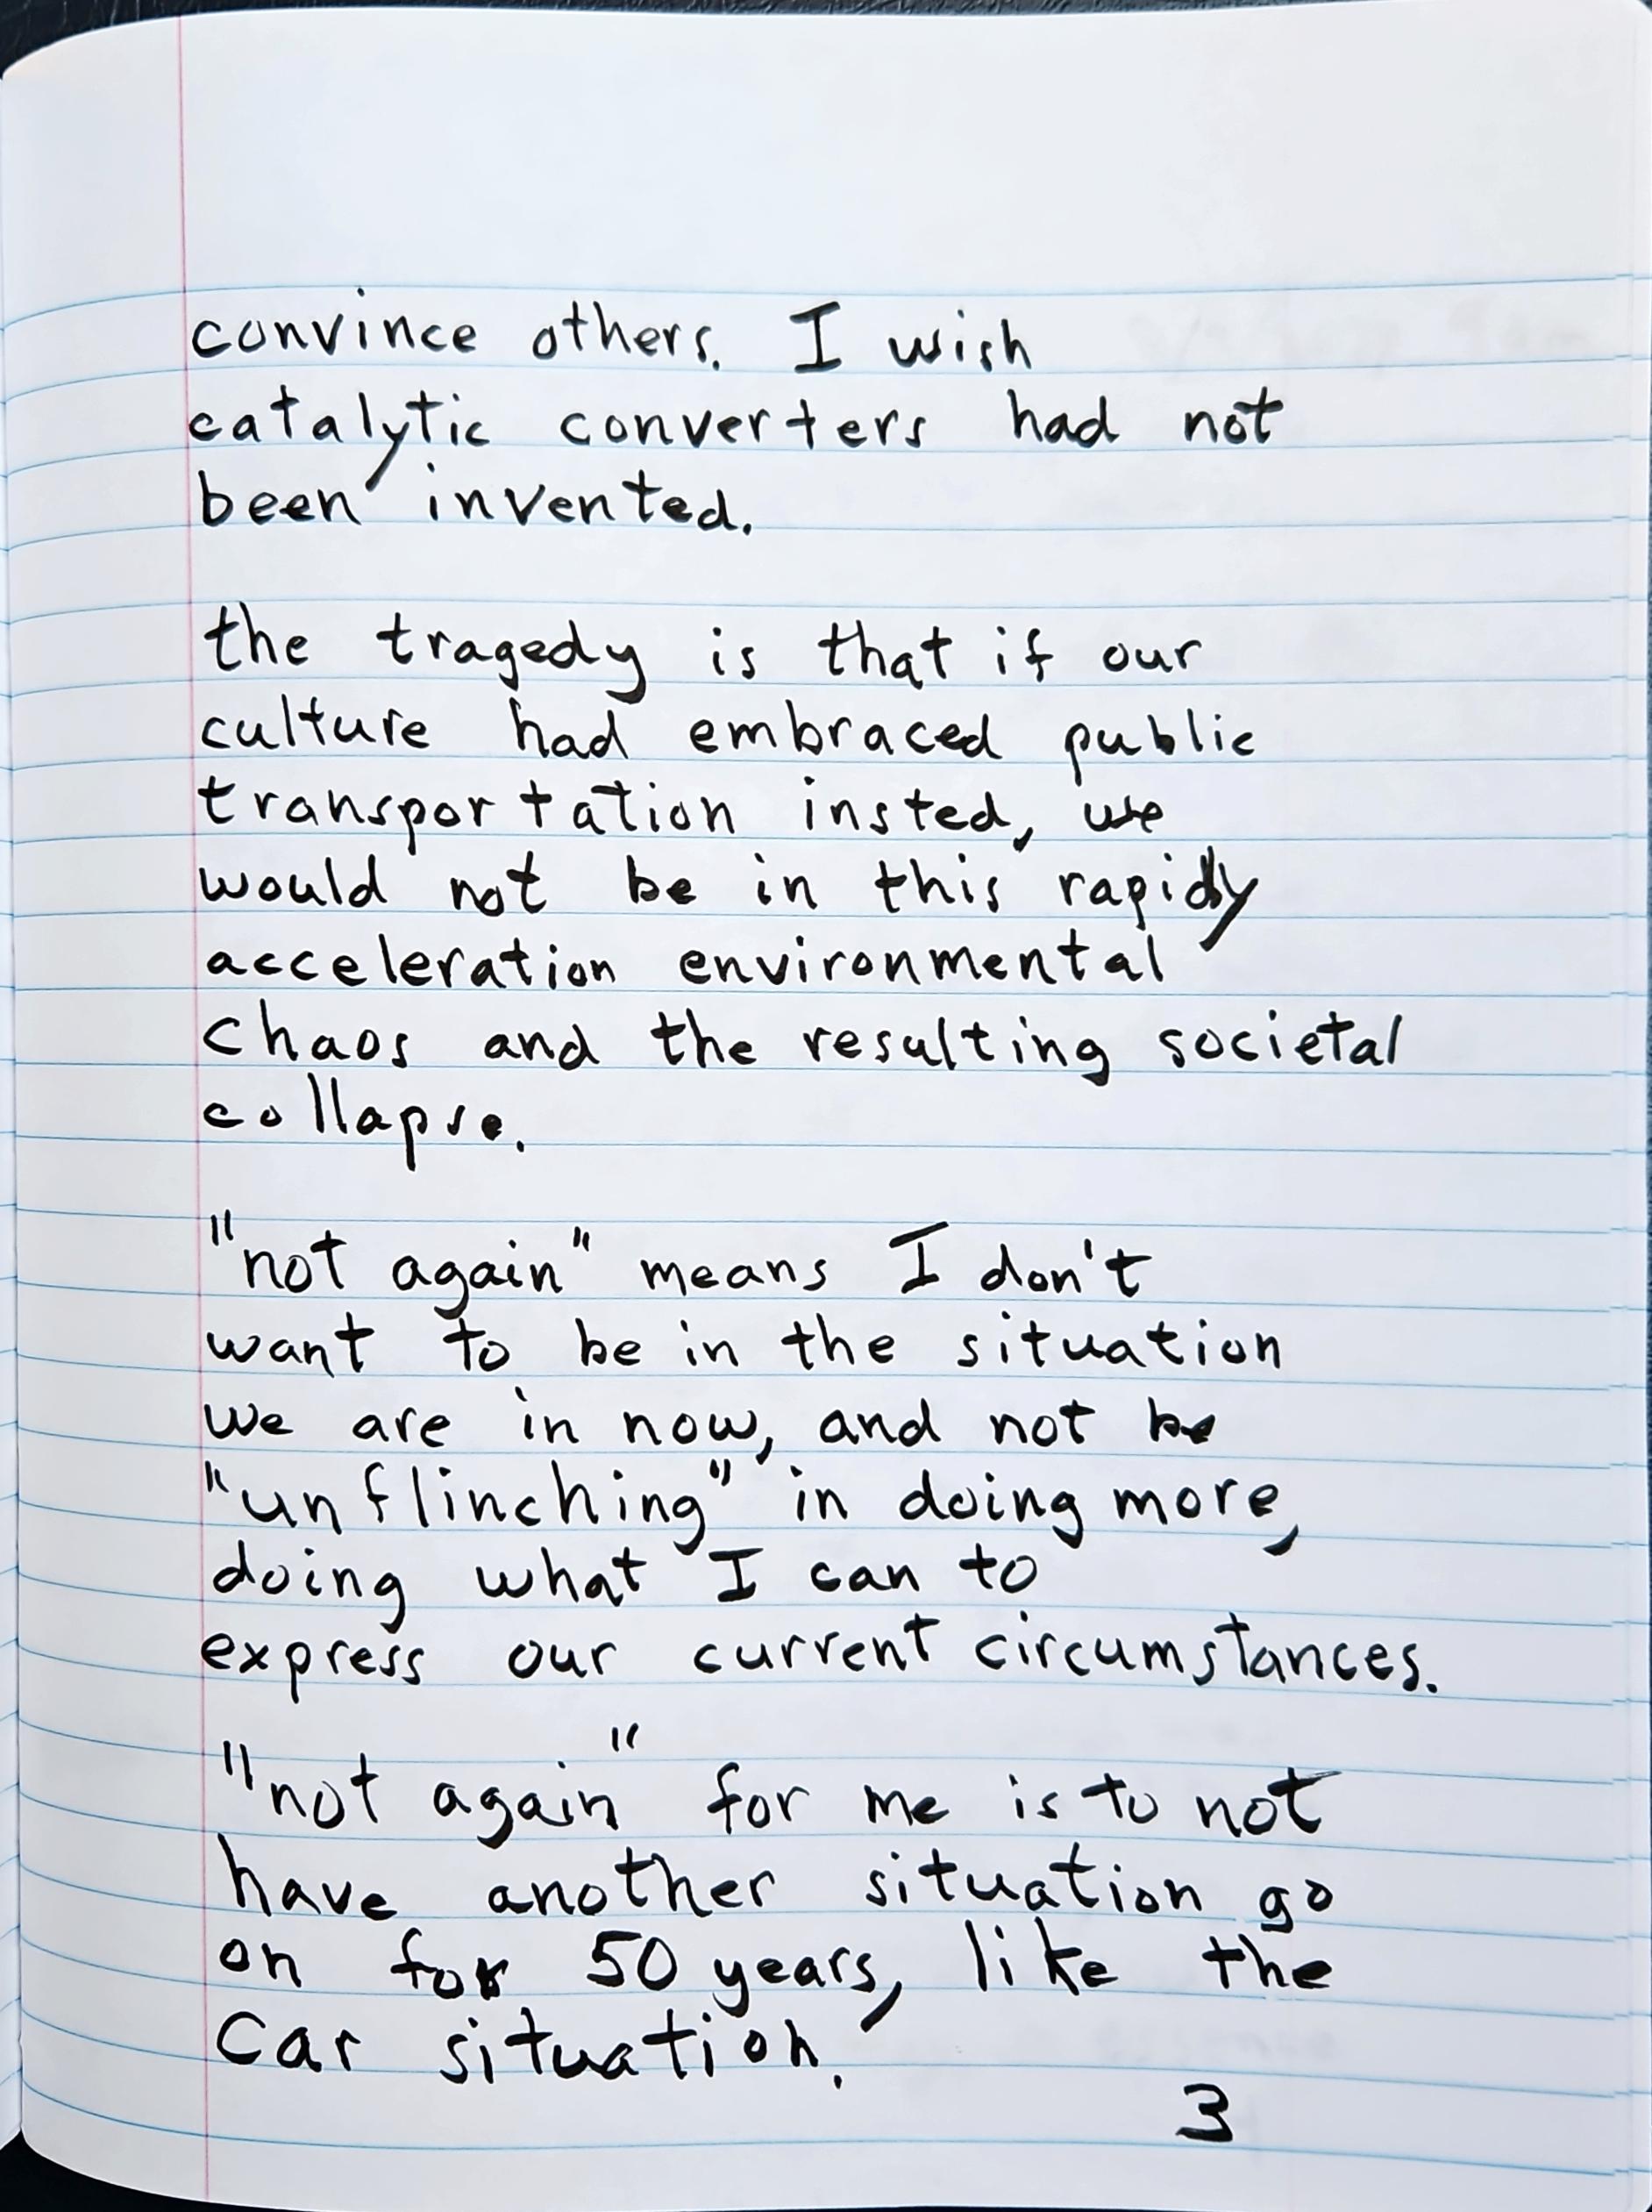 convince others. I wish
catalytic converters had not
been invented.
the tragedy is that if our
culture had embraced public
transportation insted, we
would not be in this rapidly
acceleration environmental
chaos and the resulting societal
collapse.
"not again" means I don't
want to be in the situation
we are in now, and not be
"unflinching" in doing more,
doing what I can to
express our current circumstances.
"not again" for me is to not
have another situation go
on for 50 years, like the
car situation.
3